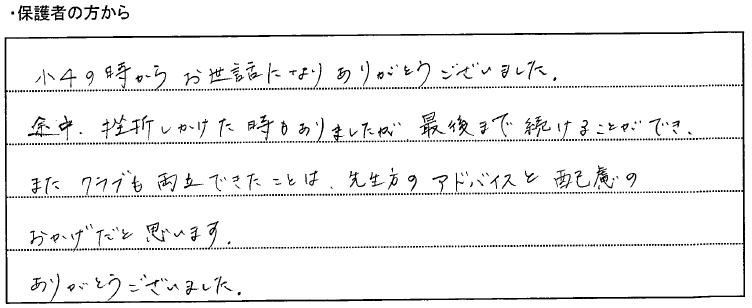 ・保護者の方から
小4の時から お世話になり ありがとうございました.
途中、挫折しかけた時もありましたが 最後まで 続けることができ、
また クラブも 両立できたことは、先生方の アドバイスと 配慮の
おかげだと 思います.
ありがとうございました.